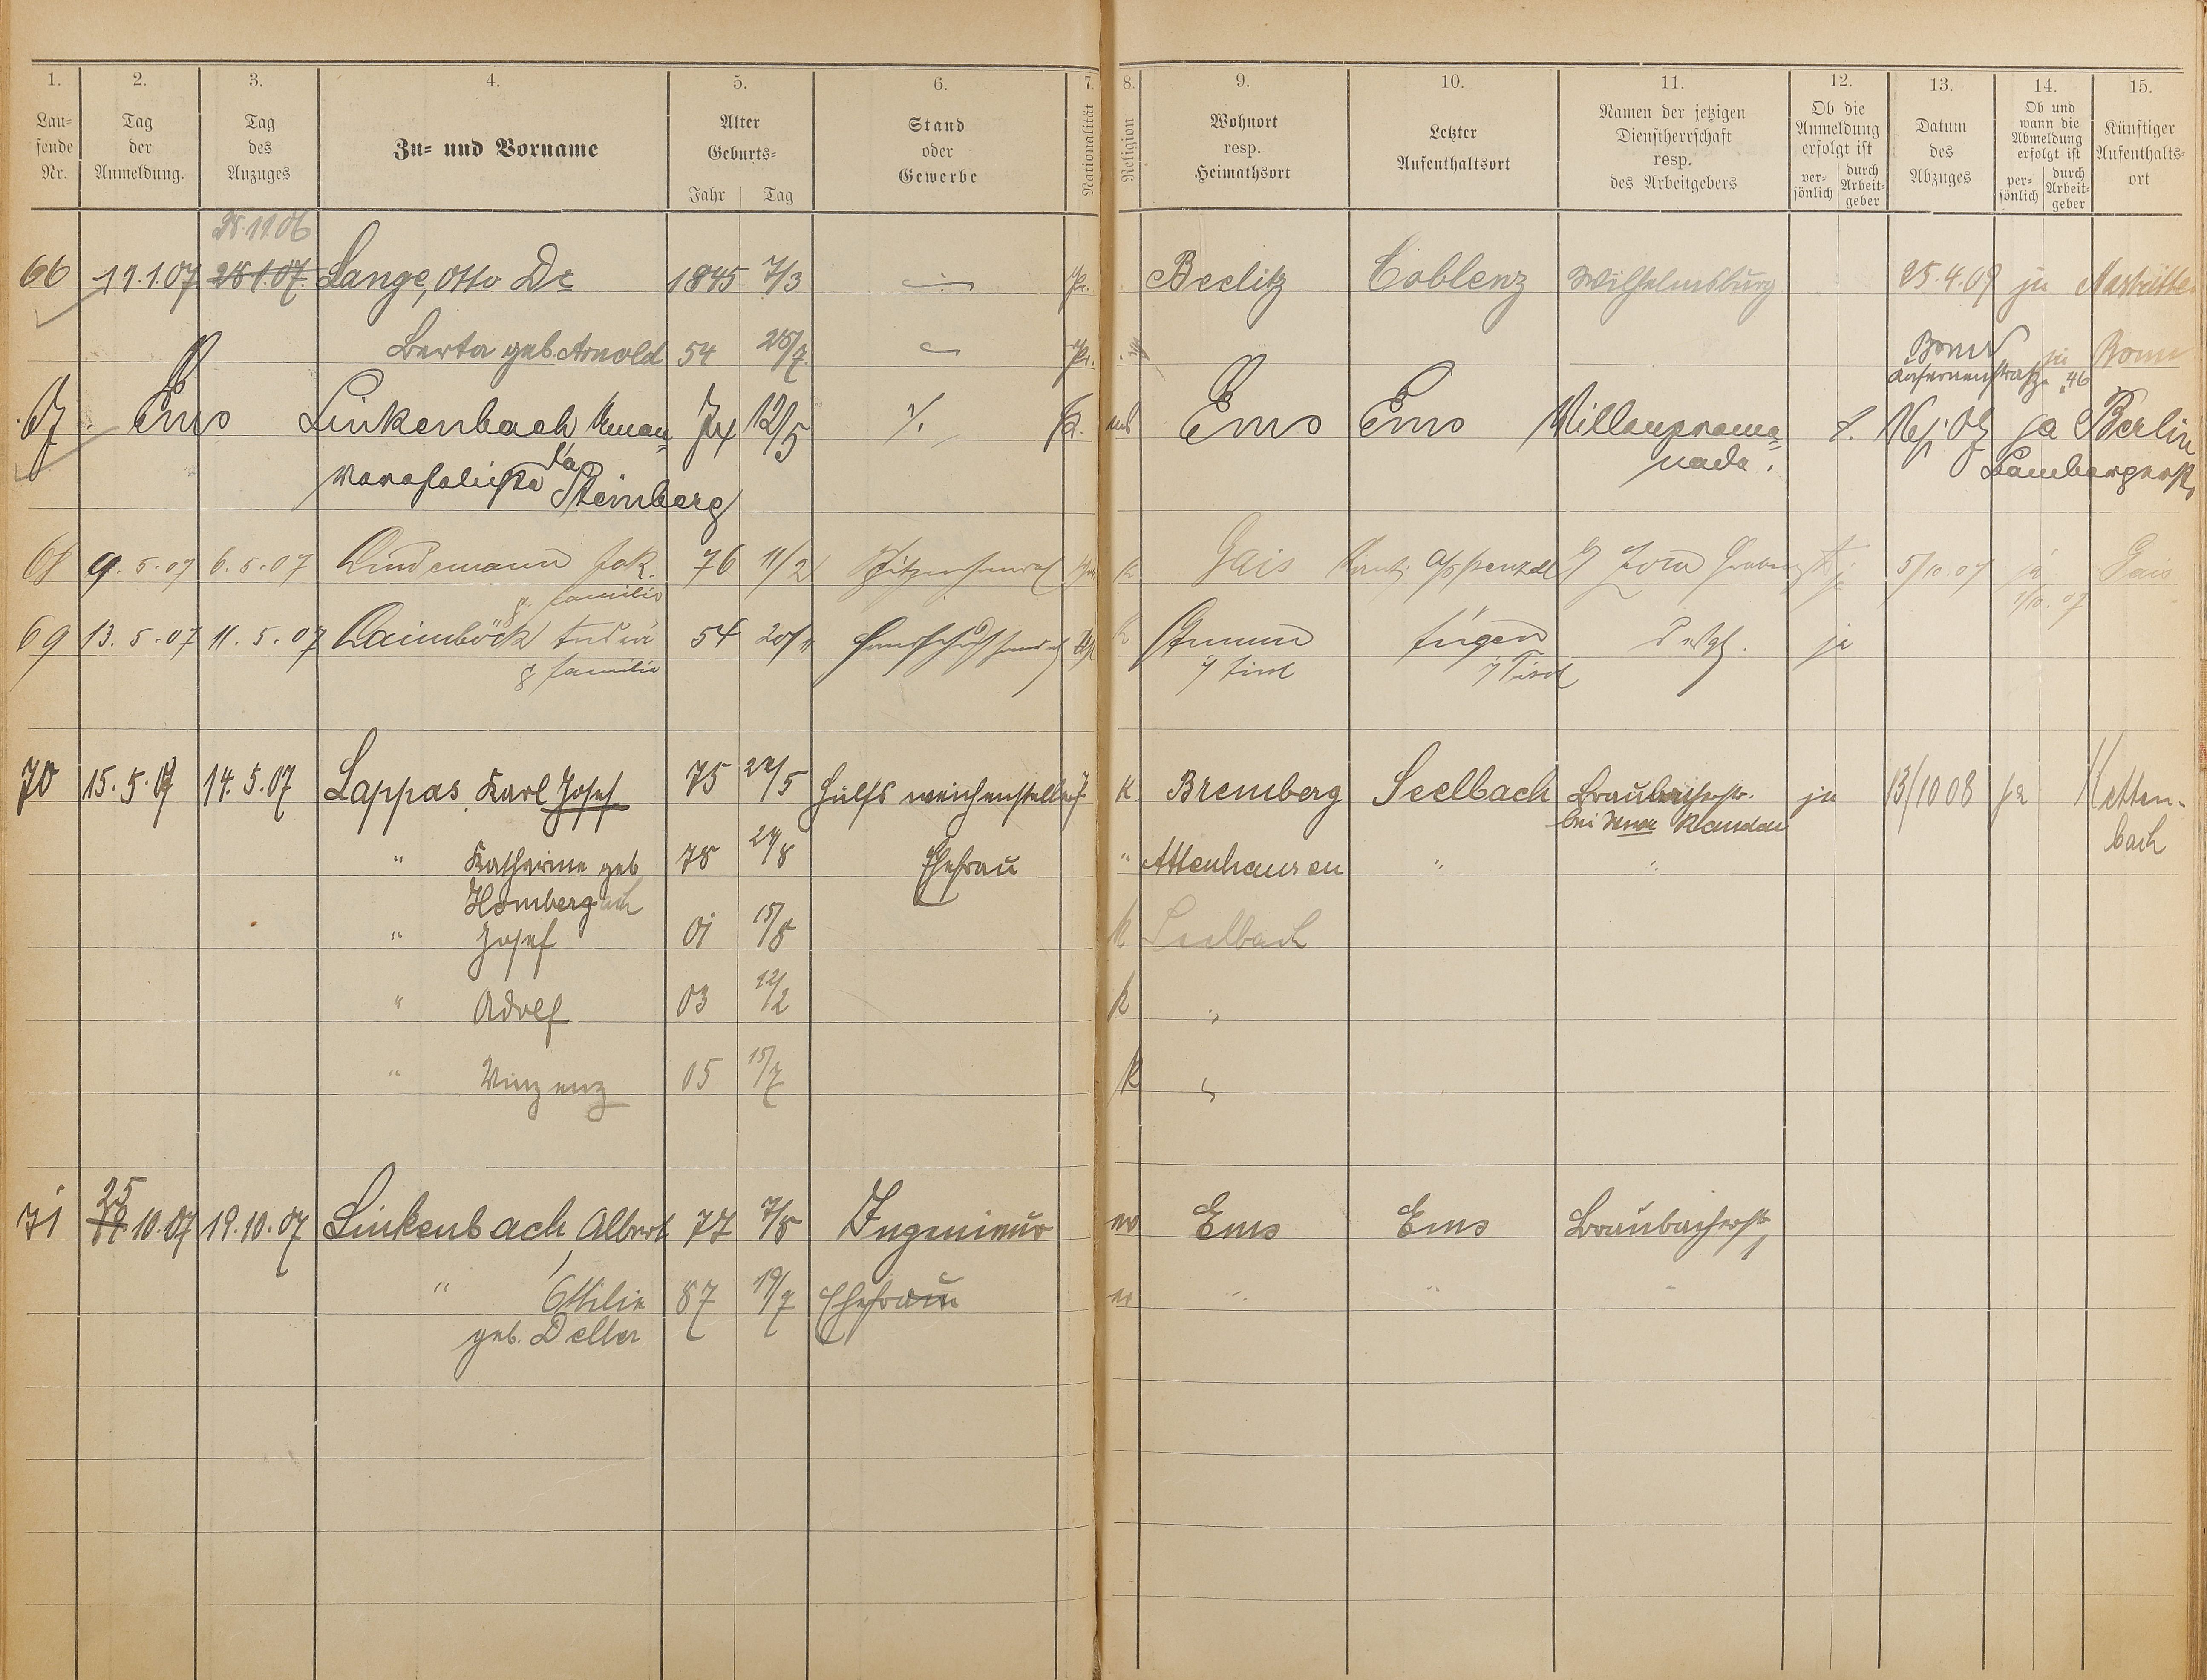 1. 2. 3. 4. 5. 6. 7. 8. 9. 10. 11. 12. 13. 14. 15.
Lau-
fende
Nr.
Tag
der
Anmeldung.
Tag
des
Anzuges
Zu- und Vorname
Alter
Geburts-
Jahr Tag
Stand
oder
Gewerbe
Nationalität
Religion
Wohnort
resp.
Heimathsort
Letzter
Aufenthaltsort
Namen der jetzigen
Dienstherrschaft
resp.
des Arbeitgebers
Ob die
Anmeldung
erfolgt ist
per-
sönlich
durch
Arbeit-
geber
Datum
des
Abzuges
Ob und
wann die
Abmeldung
erfolgt ist
per-
sönlich
durch
Arbeit-
geber
Künftiger
Aufenthalts-
ort
28.11.06
66 11.1.07 28.1.07 Lange, Otto Dr 1845 7/3 Pr. Beelitz Coblenz Wilhelmsburg 25.4.09 ja
Berta geb. Arnold 54 28/7 Pr. Bonn ja Bonn
46
67 Ems Linkenbach 74 12/5 Pr. Ems Ems Villenprome-
nade. ja Berlin
Steinberg
68 9.5.07 6.5.07 Lindemann Jak. 76 11/2 Gais Appenzell 5/10.07 ja Gais
g. Familie
69 13.5.07 11.5.07 Laimböck 54 k Fügen ja
g Familie Tirol Tirol
70 15.5.07 14.5.07 Lappas Karl Josef 75 22/5 Hülfsweichensteller K. Bremberg Seelbach Braubacherstr. ja 13/10 08 ja Ketten-
bach
bei
" Katharine geb 78 24/8 Ehefrau " Attenhausen " "
Homberg
" Josef 01 15/8 k Seelbach
" Adolf 03 12/2 k "
" Vinzenz 05 15/7 k "
25
71 19.10.07 19.10.07 Linkenbach Albert 77 7/8 Ingenieur ev Ems Ems Braubacherstr
" Ottilie 87 19/7 Ehefrau ev " " "
geb. Deller